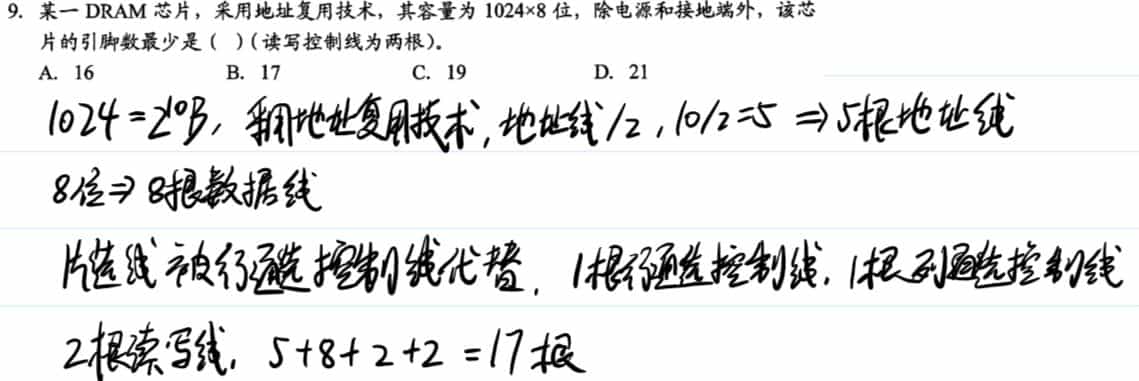 9. 某一 DRAM 芯片，采用地址复用技术，其容量为 1024×8 位，除电源和接地端外，该芯
片的引脚数最少是（ ）(读写控制线为两根)。
A. 16 B. 17 C. 19 D. 21
1024=2¹⁰B，采用地址复用技术，地址线/2，10/2=5 ⇒5根地址线
8位⇒8根数据线
片选线被行通选控制线代替，1根行通选控制线，1根列通选控制线
2根读写线，5+8+2+2=17根